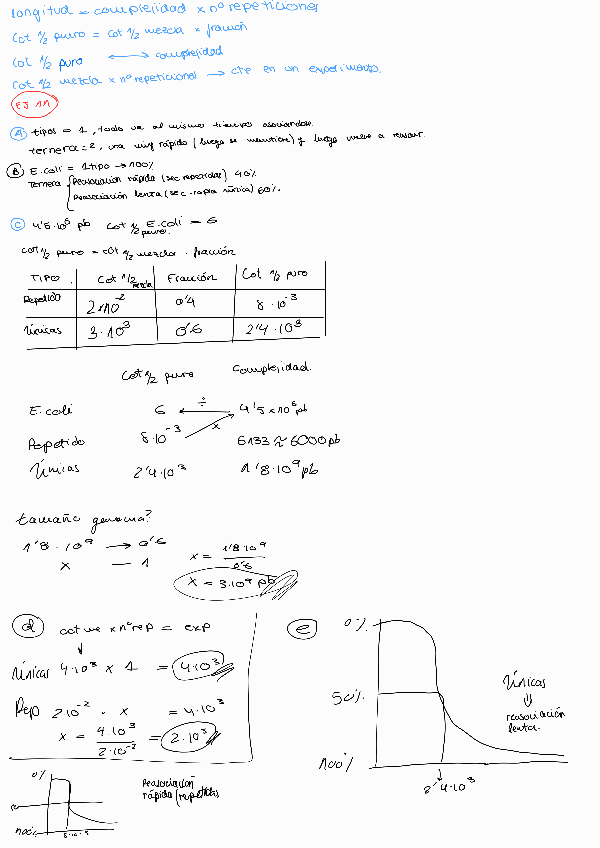 longitud = complejidad × nº repeticiones
Cot 1/2 puro = Cot 1/2 mezcla × fracción
Cot 1/2 puro ⟷ complejidad
Cot 1/2 mezcla × nº repeticiones → cte en un experimento.
EJ 11
A tipos = 1, todo va al mismo tiempo asociándose.
ternera = 2, una muy rápido (luego se mantiene) y luego vuelve a
B E.coli = 1 tipo → 100%
Ternera Reasociación rápida (sec repetidas) 40%
Reasociación lenta (sec. copia única) 60%.
C 4'5·10⁶ pb Cot 1/2 puro E.coli = 6
Cot 1/2 puro = Cot 1/2 mezcla · fracción
TIPO Cot 1/2 mezcla Fracción Cot 1/2 puro
Repetido 2×10⁻² 0'4 8·10⁻³
Únicas 3·10³ 0'6 2'4·10³
Cot 1/2 puro Complejidad.
E.coli 6 ÷ 4'5×10⁶ pb
Repetido 8·10⁻³ × 6133 ≈ 6000 pb
Únicas 2'4·10³ 1'8·10⁹ pb
tamaño genoma?
1'8·10⁹ → 0'6
x — 1
x = 1'8·10⁹ / 0'6
x = 3·10⁹ pb
d cot me × nº rep = exp
Únicas 4·10³ × 1 = 4·10³
Rep 2·10⁻² · x = 4·10³
x = 4·10³ / 2·10⁻² = 2·10³
e 0%
50%
100%
2'4·10³
Únicas
reasociación
lenta.
0%
100%
8·10⁻³
Reasociación
rápida (repetidas)